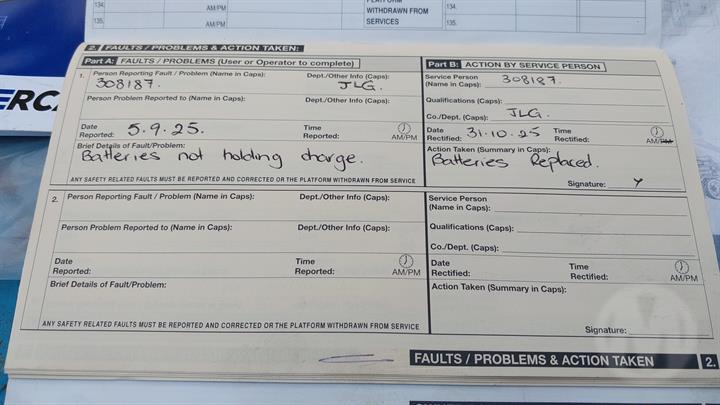 134.
AM/PM
135.
AM/PM
PLATFORM
WITHDRAWN FROM
SERVICES
134.
135.
ERCA
2. FAULTS / PROBLEMS & ACTION TAKEN:
Part A: FAULTS / PROBLEMS (User or Operator to complete)
1. Person Reporting Fault / Problem (Name in Caps): Dept./Other Info (Caps):
308187. JLG.
Person Problem Reported to (Name in Caps): Dept./Other Info (Caps):
Date Reported: 5.9.25. Time Reported: AM/PM
Brief Details of Fault/Problem:
Batteries not holding charge.
ANY SAFETY RELATED FAULTS MUST BE REPORTED AND CORRECTED OR THE PLATFORM WITHDRAWN FROM SERVICE
Part B: ACTION BY SERVICE PERSON
Service Person (Name in Caps): 308187.
Qualifications (Caps):
Co./Dept. (Caps): JLG.
Date Rectified: 31.10.25 Time Rectified: AM/PM
Action Taken (Summary in Caps):
Batteries Replaced.
Signature:
2. Person Reporting Fault / Problem (Name in Caps): Dept./Other Info (Caps):
Person Problem Reported to (Name in Caps): Dept./Other Info (Caps):
Date Reported: Time Reported: AM/PM
Brief Details of Fault/Problem:
ANY SAFETY RELATED FAULTS MUST BE REPORTED AND CORRECTED OR THE PLATFORM WITHDRAWN FROM SERVICE
Service Person (Name in Caps):
Qualifications (Caps):
Co./Dept. (Caps):
Date Rectified: Time Rectified: AM/PM
Action Taken (Summary in Caps):
Signature:
FAULTS / PROBLEMS & ACTION TAKEN 2.